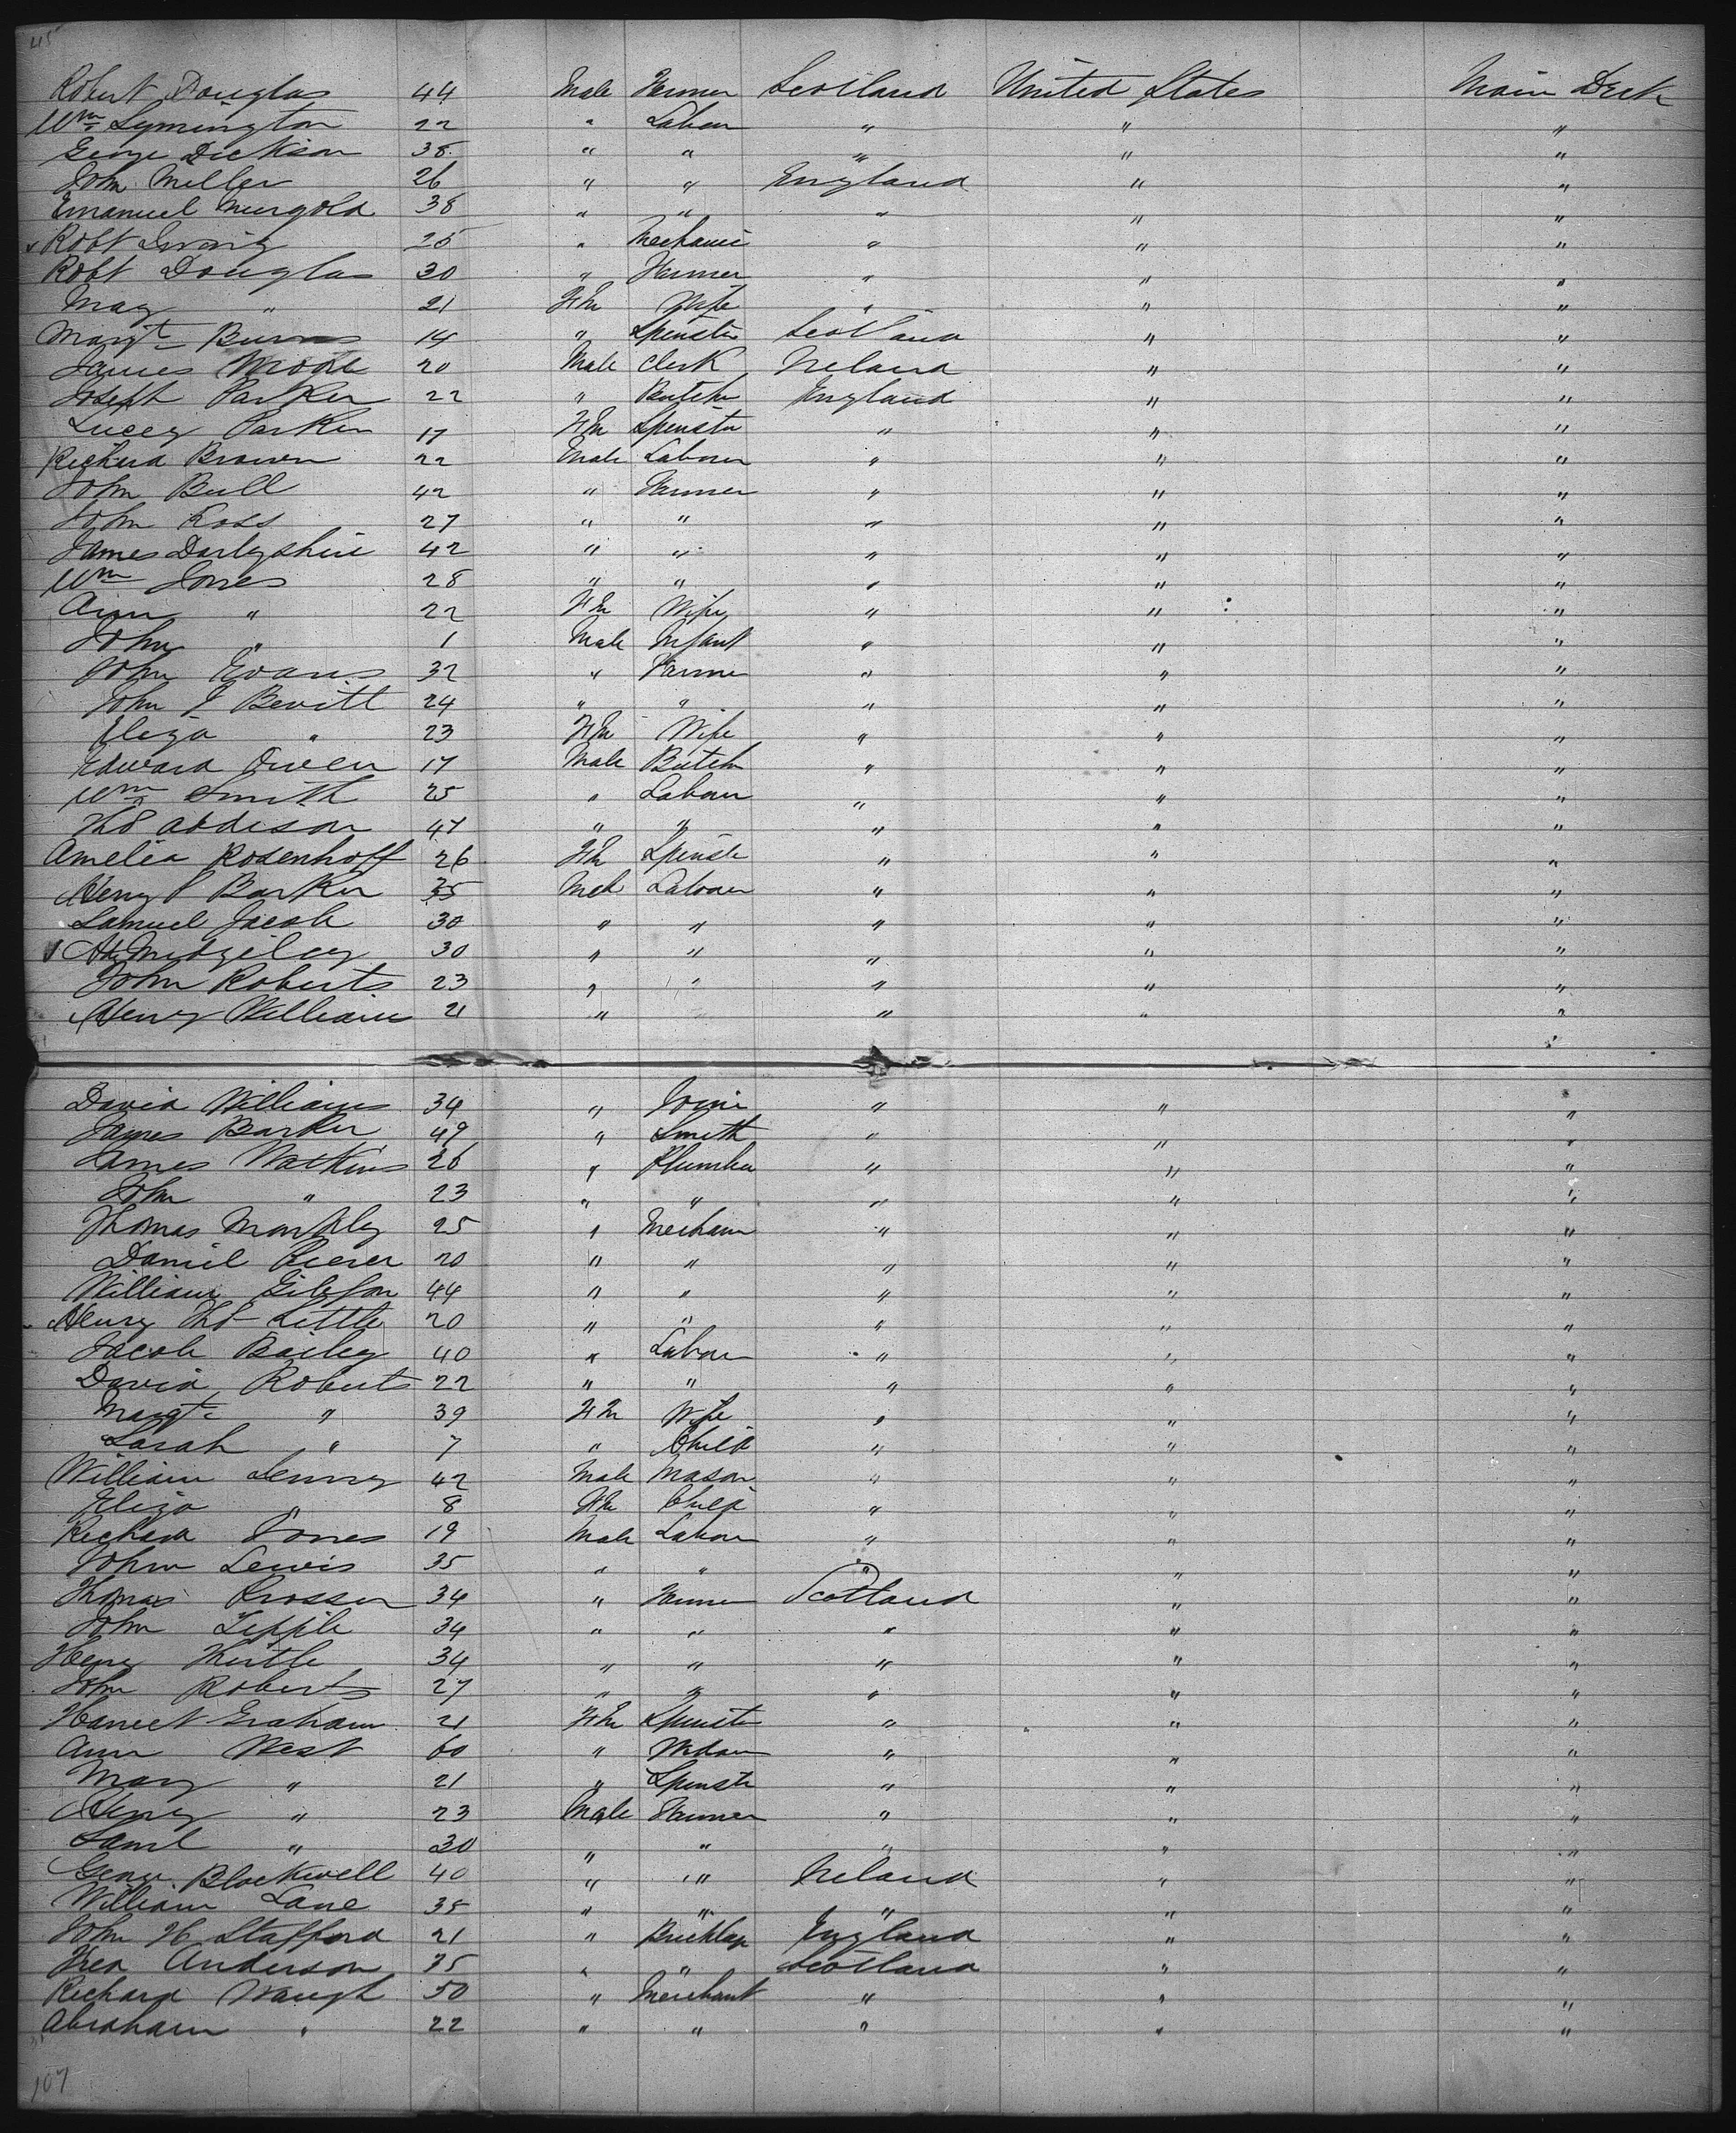 45
Robert Douglas 44 Male Farmer Scotland United States Main Deck
Wm Symington 22 " Labou " " "
George Dickson 38 " " " " "
John Miller 26 " " England " "
Emanuel 38 " " " " "
Robt 25 " Mechanic " " "
Robt Douglas 30 " Farmer " " "
May " 21 Fm Wife " " "
Margt Burns 14 " Spinster Scotland " "
James 20 Male Clerk Ireland " "
Joseph Parker 22 " Butch England " "
Lucey Parker 17 Fm Spinster " " "
Richard Brown 22 Male Labour " " "
John Bull 42 " Farmer " " "
John Ross 27 " " " " "
James Darbyshire 42 " " " " "
Wm Jones 28 " " " " "
Ann " 22 Fm Wife " " "
John " 1 Male Infant " " "
John Evans 32 " Farmer " " "
John J Bevitt 24 " " " " "
Eliza " 23 Fm Wife " " "
Edward Owen 17 Male Butch " " "
Wm Smith 25 " Labour " " "
Ths Addison 47 " " " " "
Amelia Rosenhoff 26 Fm Spinst " " "
Henry P Barker 35 Male Labour " " "
Samuel Jacob 30 " " " " "
Midgeley 30 " " " " "
John Roberts 23 " " " " "
Henry Williams 21 " " " "
"
David Williams 34 " Joine " " "
James Barker 49 " Smith " " "
James Watkins 26 " Plumber " " "
John " 23 " " " " "
Thomas 25 " Mechani " " "
Daniel 20 " " " " "
William Gibson 44 " " " " "
Henry Ths Little 20 " " " " "
Jacob Bailey 40 " Labour " " "
David Roberts 22 " " " " "
Margt " 39 Fm Wife " " "
Sarah " 7 " Child " " "
William 42 Male Mason " " "
Eliza " 8 Fm Child " " "
Richard Jones 19 Male Labour " " "
John Lewis 35 " " " " "
Thomas Prosser 34 " Farmer Scotland " "
John Tipple 34 " " " " "
Henry 34 " " " " "
John Roberts 27 " " " " "
Harriet Graham 21 Fm Spinster " " "
Ann West 60 " Widow " " "
Mary " 21 " Spinst " " "
Henry " 23 Male Farmer " " "
Saml " 30 " " " " "
George Blackwell 40 " " Ireland " "
William Lane 35 " " " " "
John H Stafford 21 " Bricklay England " "
Fred Anderson 35 " " Scotland " "
Richard Waugh 50 " Merchant " " "
Abraham " 22 " " " " "
107